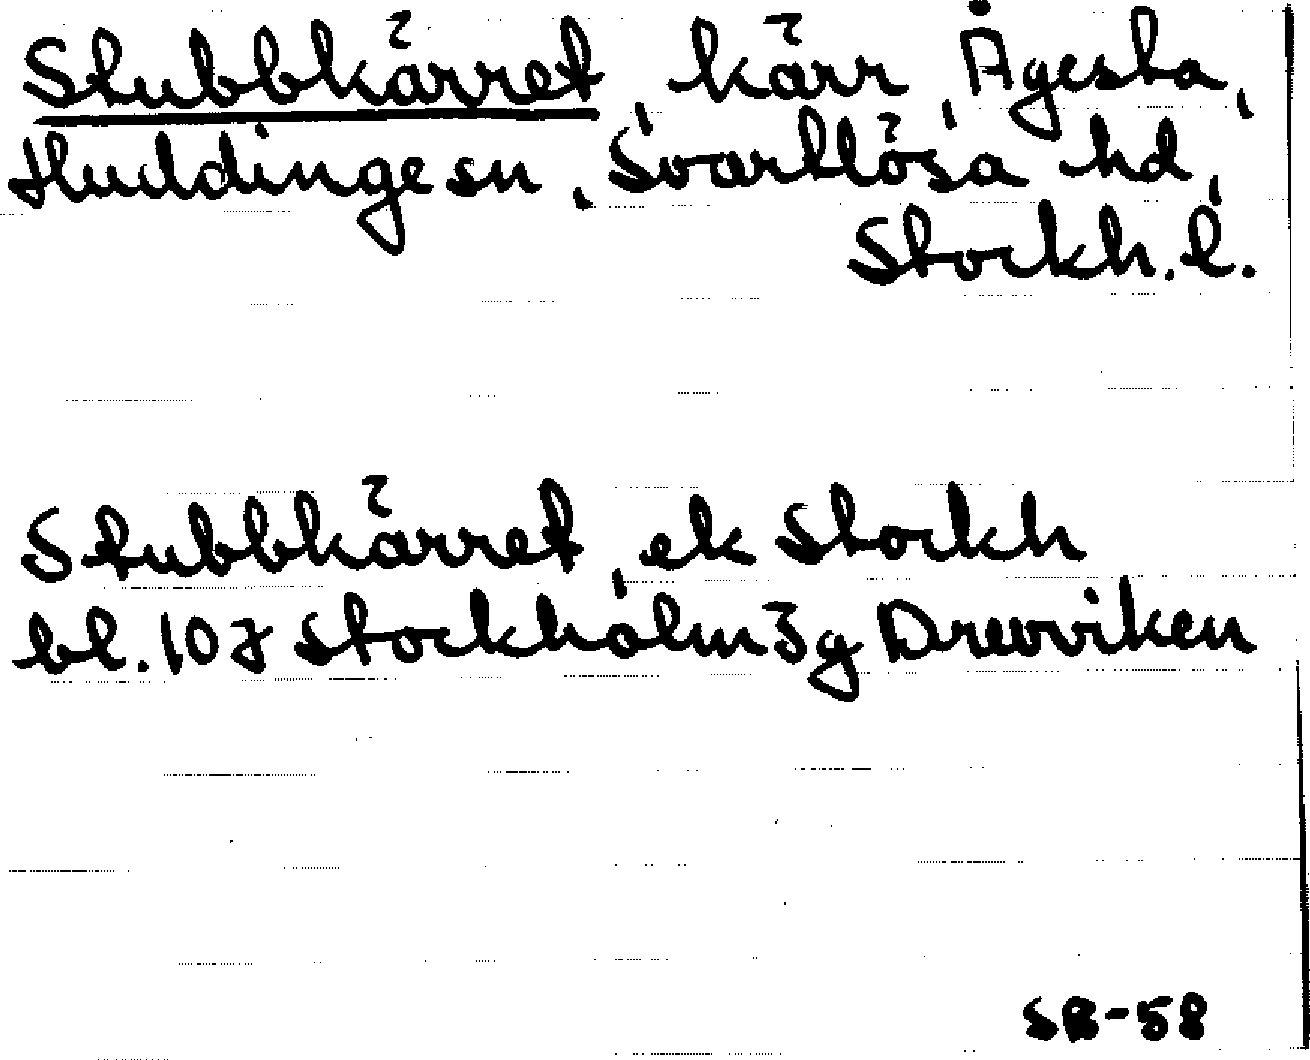 Stubbkärret, kärr, Ågesta,
Huddinge sn, Svartlösa hd,
Stockh. l.
Stubbkärret, ek Stockh
bl. 107 Stockholm 3g Drevviken
SB-58